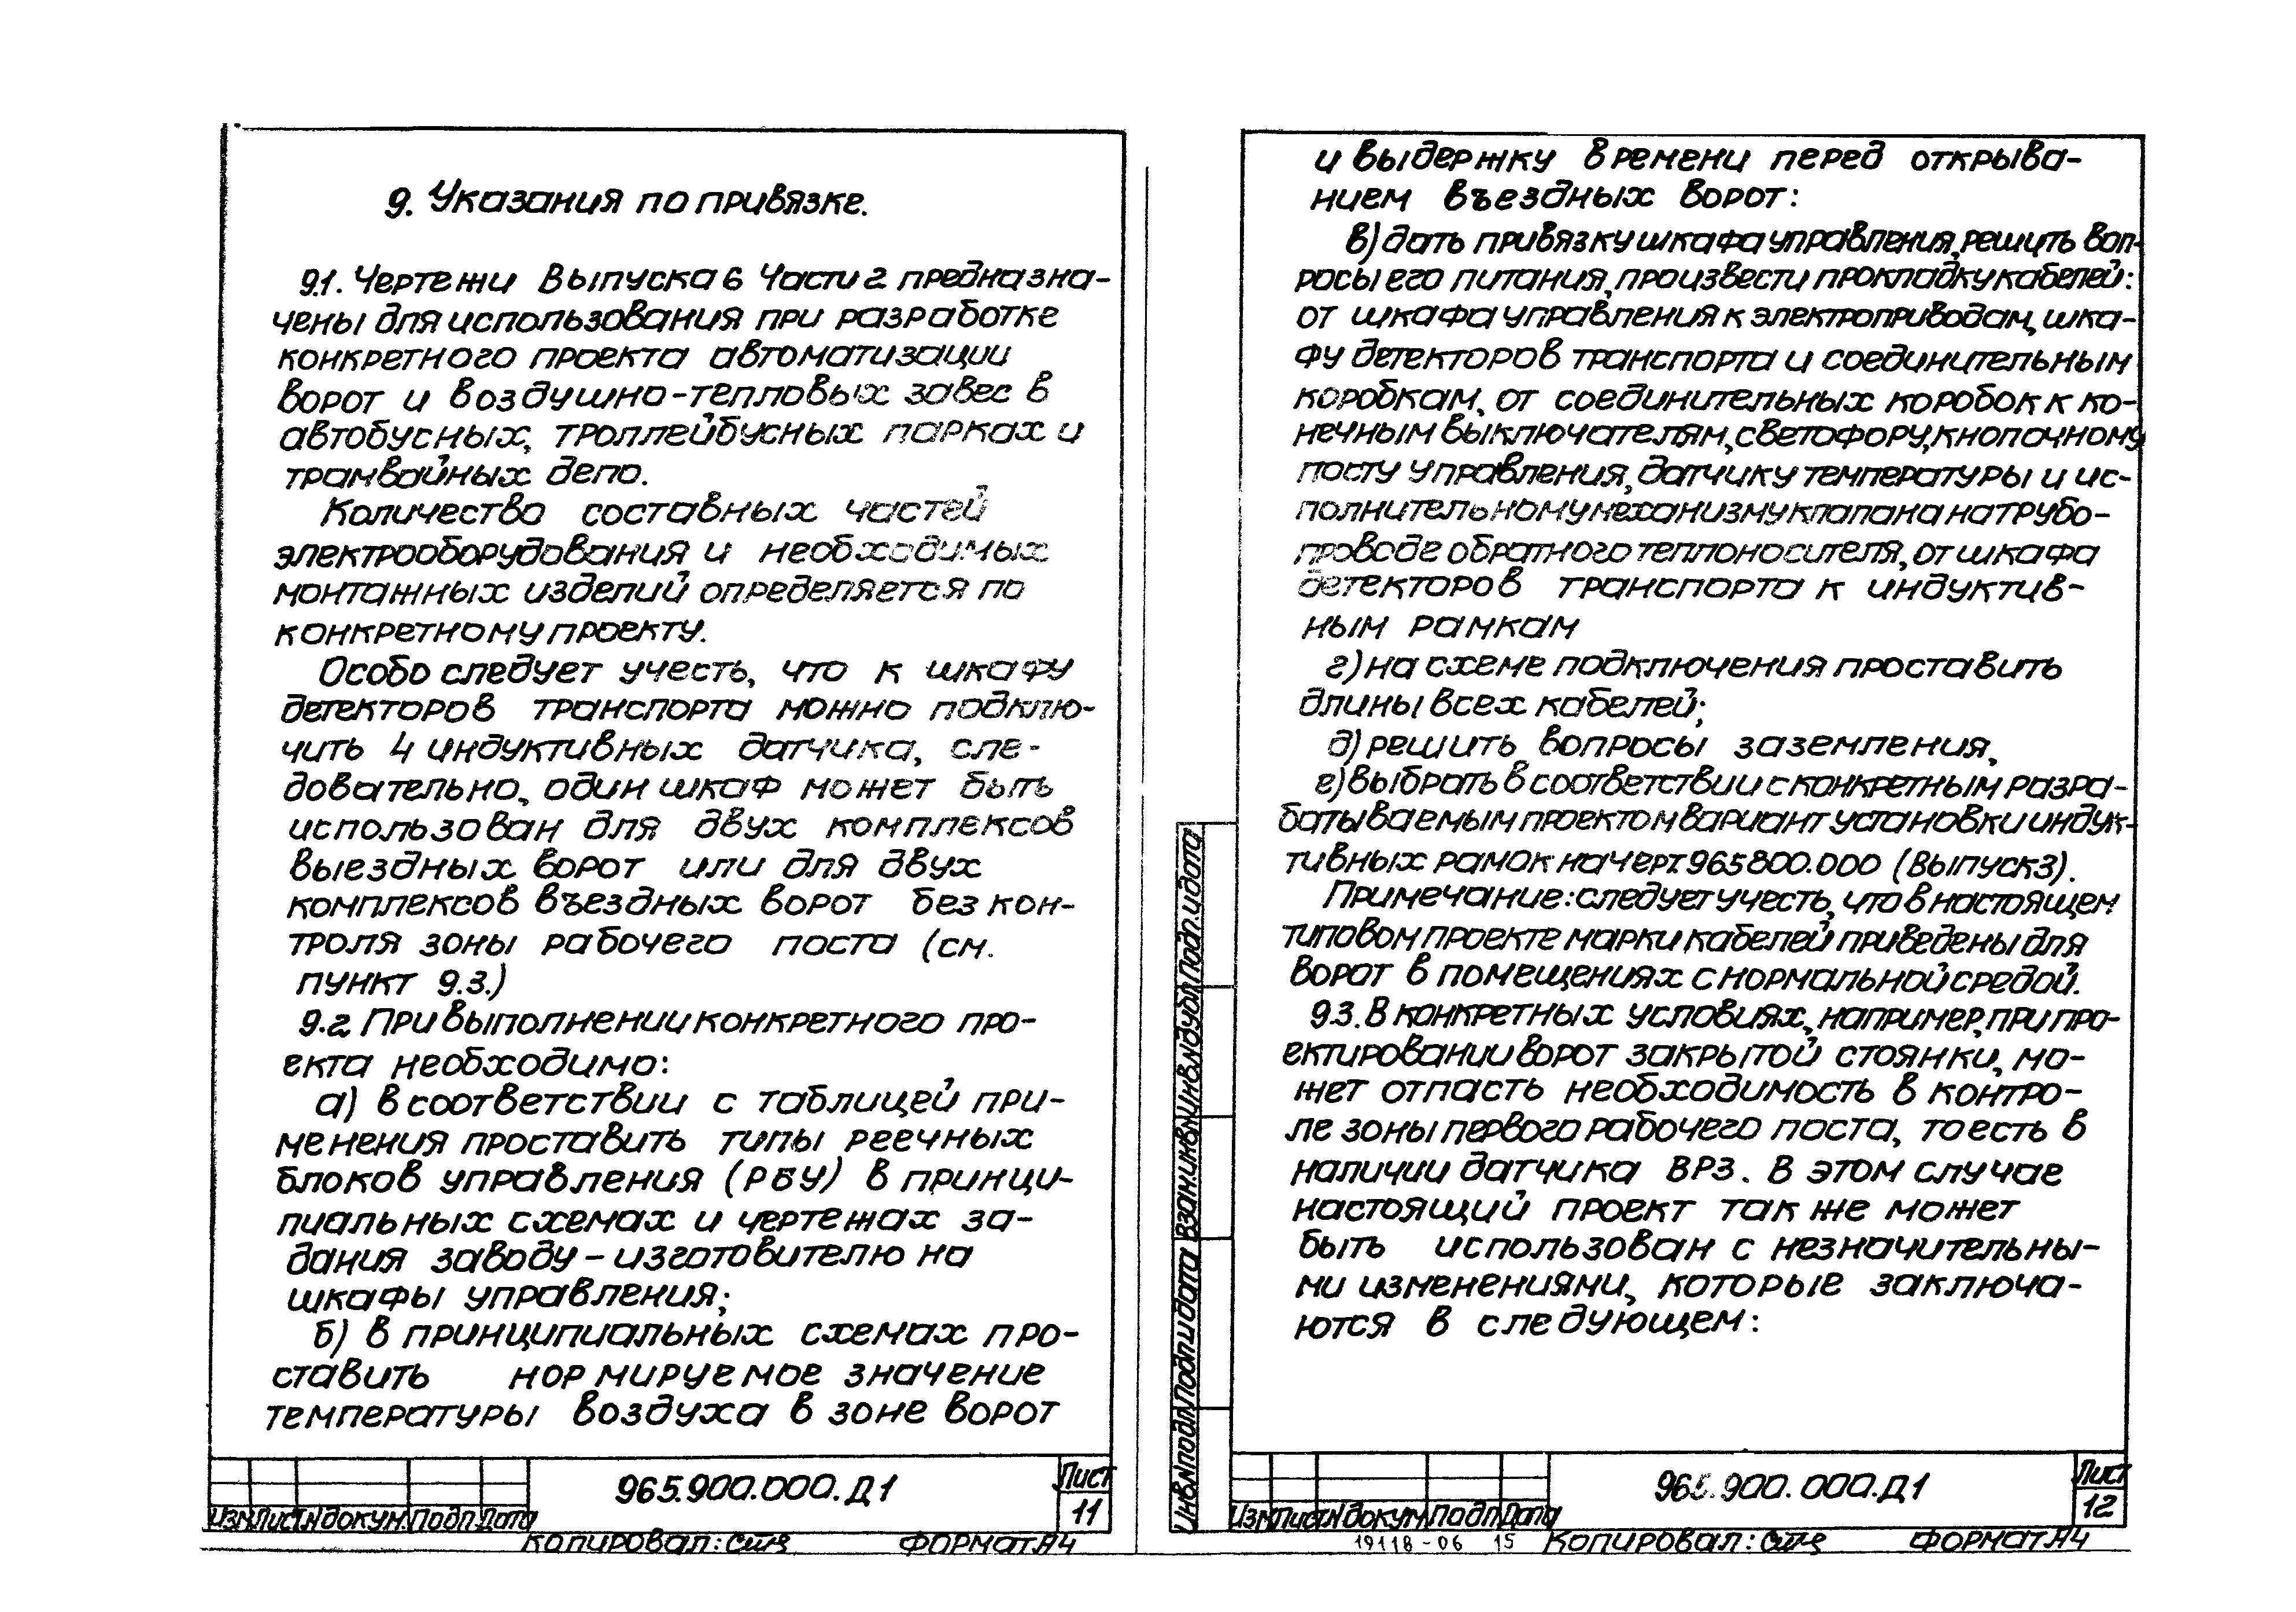 9. Указания по привязке.
9.1. Чертежи Выпуска 6 Части 2 предназна-
чены для использования при разработке
конкретного проекта автоматизации
ворот и воздушно-тепловых завес в
автобусных, троллейбусных парках и
трамвайных депо.
Количество составных частей
электрооборудования и необходимых
монтажных изделий определяется по
конкретному проекту.
Особо следует учесть, что к шкафу
детекторов транспорта можно подклю-
чить 4 индуктивных датчика, сле-
довательно, один шкаф может быть
использован для двух комплексов
выездных ворот или для двух
комплексов въездных ворот без кон-
троля зоны рабочего поста (см.
пункт 9.3.)
9.2. При выполнении конкретного про-
екта необходимо:
а) в соответствии с таблицей при-
менения проставить типы реечных
блоков управления (РБУ) в принци-
пиальных схемах и чертежах за-
дания заводу-изготовителю на
шкафы управления;
б) в принципиальных схемах про-
ставить нормируемое значение
температуры воздуха в зоне ворот
965.900.000.Д1
Лист
11
Изм Лист N докум. Подп. Дата
Копировал:
Формат А4
и выдержку времени перед открыва-
нием въездных ворот:
в) дать привязку шкафа управления, решить воп-
росы его питания, произвести прокладку кабелей:
от шкафа управления к электроприводам, шка-
фу детекторов транспорта и соединительным
коробкам, от соединительных коробок к ко-
нечным выключателям, светофору, кнопочному
посту управления, датчику температуры и ис-
полнительному механизму клапана на трубо-
проводе обратного теплоносителя, от шкафа
детекторов транспорта к индуктив-
ным рамкам
г) на схеме подключения проставить
длины всех кабелей;
д) решить вопросы заземления,
е) выбрать в соответствии с конкретным разра-
батываемым проектом вариант установки индук-
тивных рамок на черт. 965800.000 (Выпуск 3).
Примечание: следует учесть, что в настоящем
типовом проекте марки кабелей приведены для
ворот в помещениях с нормальной средой.
9.3. В конкретных условиях, например, при про-
ектировании ворот закрытой стоянки, мо-
жет отпасть необходимость в контро-
ле зоны первого рабочего поста, то есть в
наличии датчика ВРЗ. В этом случае
настоящий проект так же может
быть использован с незначительны-
ми изменениями, которые заключа-
ются в следующем:
Инв.N подл. Подп. и дата Взам.инв.N Инв.N дубл. Подп. и дата
965.900.000.Д1
Лист
12
Изм Лист N докум Подп Дата
19118-06 15
Копировал:
Формат А4